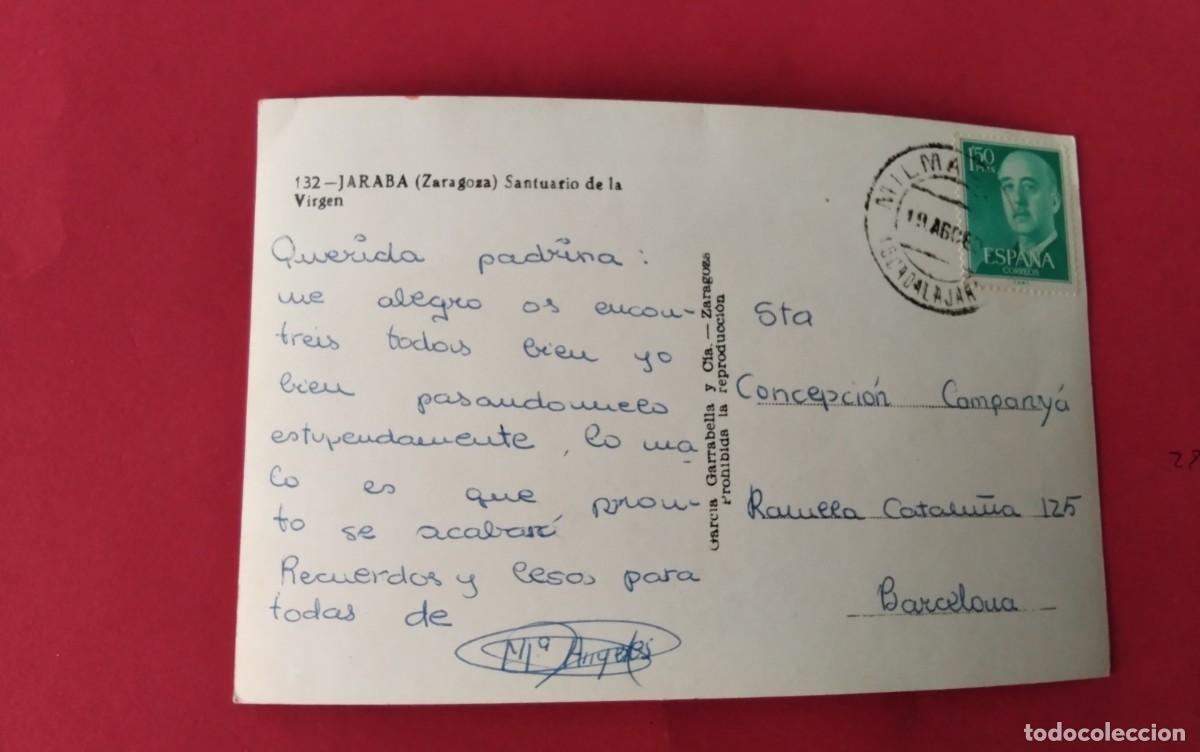 132—JARABA (Zaragoza) Santuario de la
Virgen
Querida padrina:
me alegro os encon-
treis todos bien yo
bien pasandomelo
estupendamente, lo ma
lo es que pron-
to se acabará
Recuerdos y besos para
todas de
Mª Angeles
García Garrabella y Cía.—Zaragoza
Prohibida la reproducción
1'50
PTAS
ESPAÑA
CORREOS
19 AGO
Sta
Concepción Companyá
Rambla Cataluña 125
Barcelona
todocoleccion